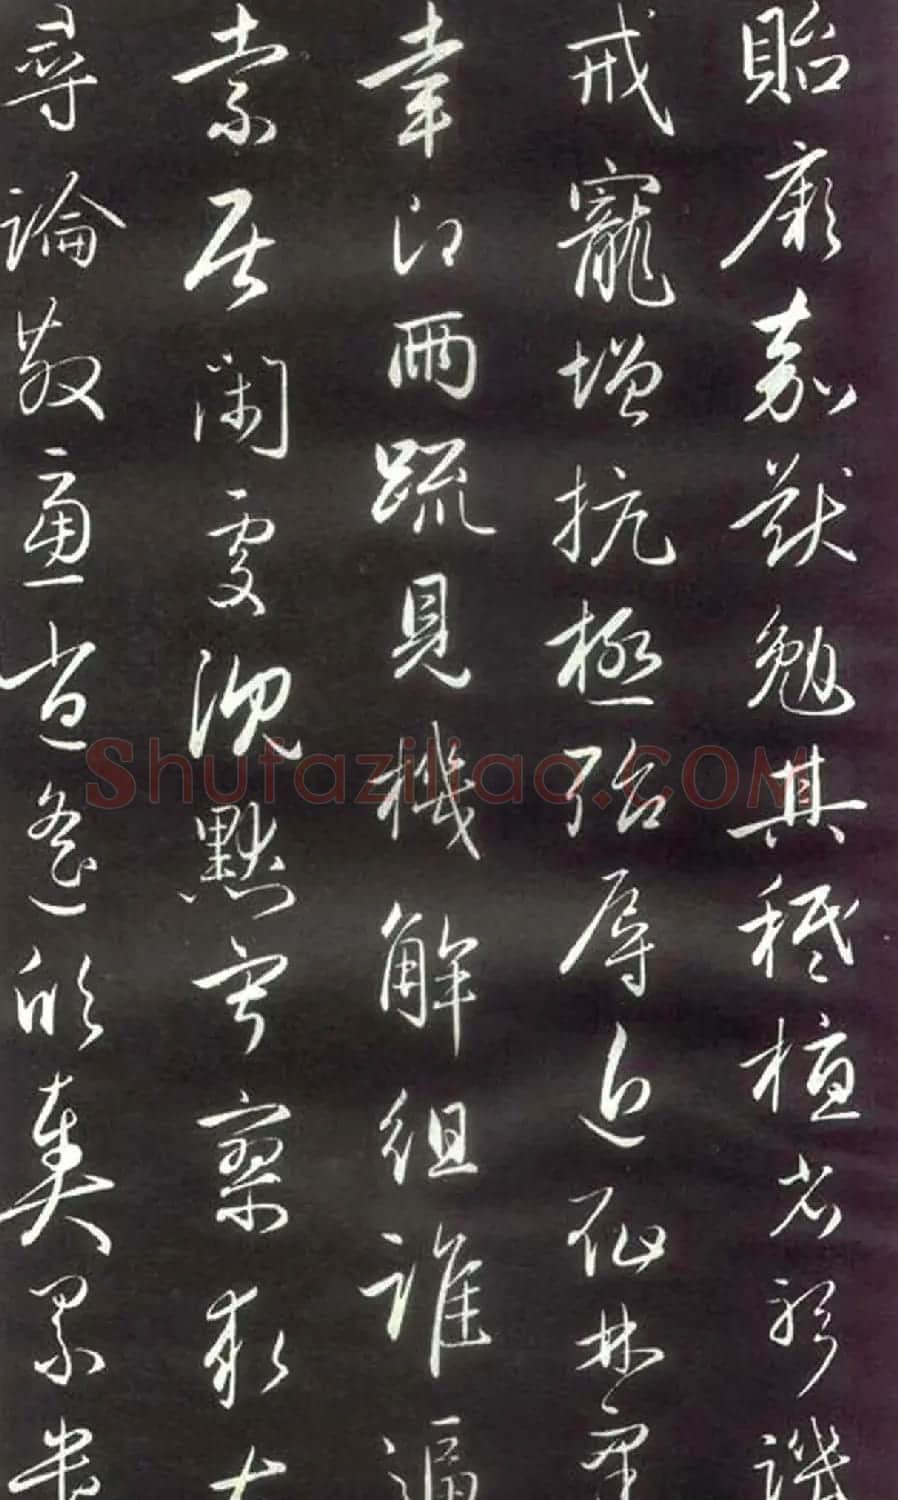 貽厥嘉猷勉其祗植省躬譏
戒寵增抗極殆辱近恥林皋
幸即兩疏見機解組誰逼
索居閑處沉默寂寥求古
尋論散慮逍遙欣奏累遣
Shufaziliao.COM